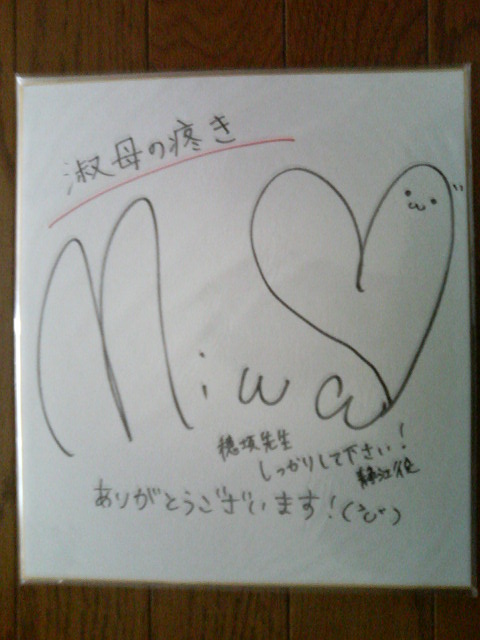 淑母の疼き
Miwa
穂積先生
しっかりして下さい!
静江役
ありがとうございます!